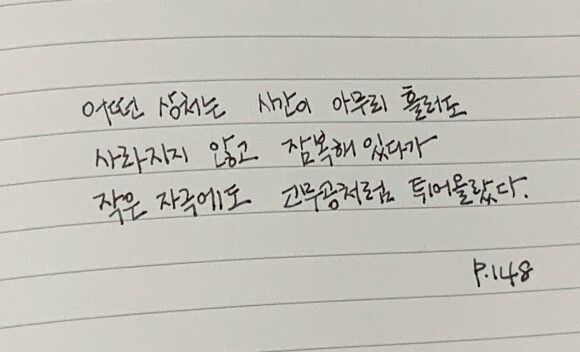 어떤 상처는 시간이 아무리 흘러도
사라지지 않고 잠복해 있다가
작은 자극에도 고무공처럼 튀어올랐다.
P.148